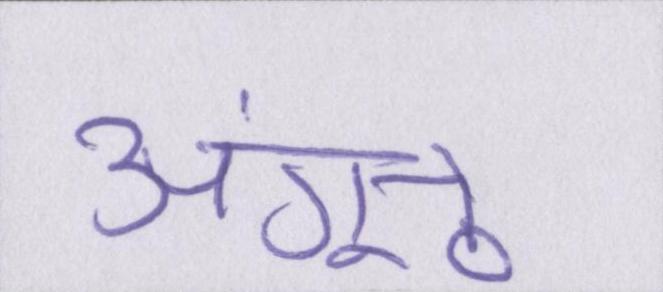 अंगूठ